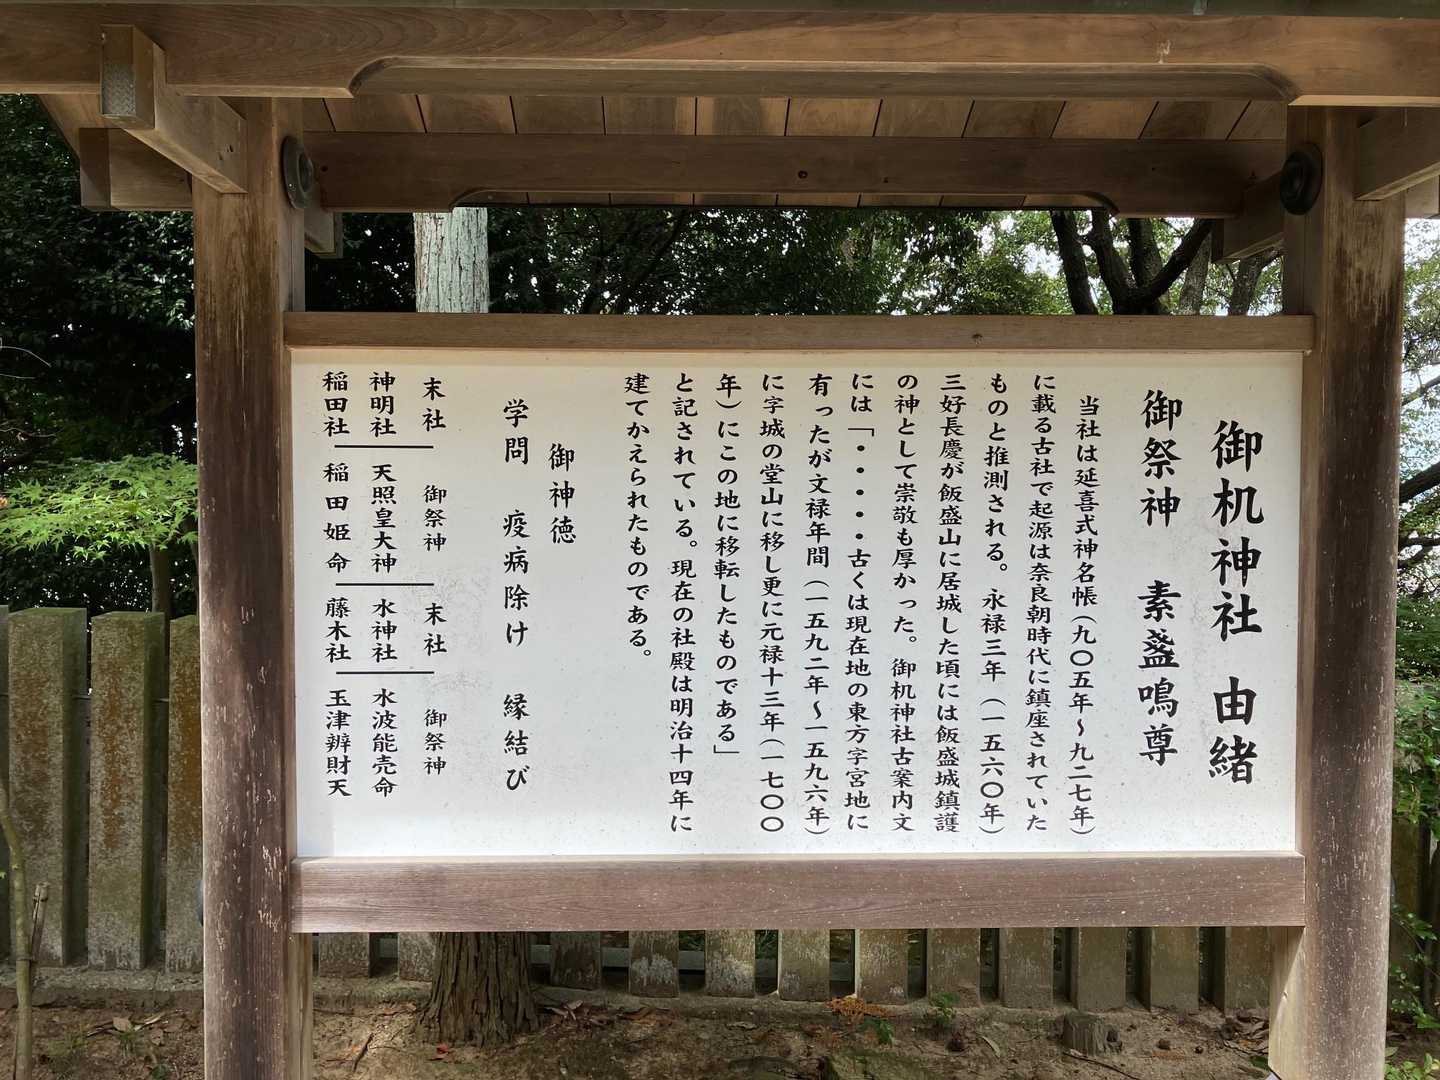 御机神社 由緒
御祭神 素盞鳴尊
当社は延喜式神名帳(九〇五年〜九二七年)
に載る古社で起源は奈良朝時代に鎮座されていた
ものと推測される。永禄三年(一五六〇年)
三好長慶が飯盛山に居城した頃には飯盛城鎮護
の神として崇敬も厚かった。御机神社古案内文
には「・・・・・古くは現在地の東方字宮地に
有ったが文禄年間(一五九二年〜一五九六年)
に字城の堂山に移し更に元禄十三年(一七〇〇
年)にこの地に移転したものである」
と記されている。現在の社殿は明治十四年に
建てかえられたものである。
御神徳
学問 疫病除け 縁結び
末社 御祭神 末社 御祭神
神明社 天照皇大神 水神社 水波能売命
稲田社 稲田姫命 藤木社 玉津辨財天